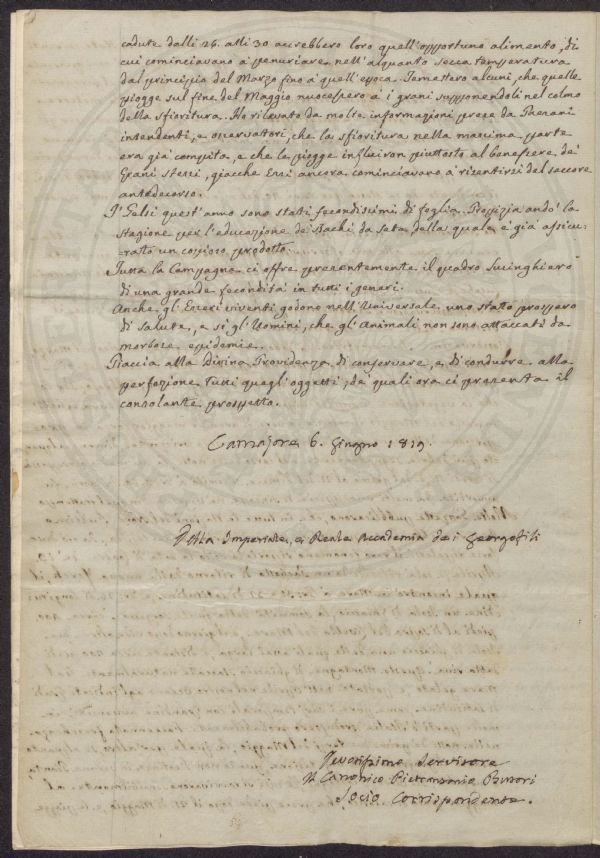 cadute dalli 26. alli 30 avrebbero loro quell'opportuno alimento, di
cui cominciavano a penuriare nell'alquanto secca temperatura
dal principio del Marzo fino a quell'epoca. Temettero alcuni, che quelle
piogge sul fine del Maggio nuocessero a i grani supponendoli nel colmo
della sfioritura. Ho rilevato da molte informazioni prese da Paesani
intendenti, e osservatori, che la sfioritura nella massima parte
era già compita, e che le piogge influiron piuttosto al benessere de'
grani stessi, giacche Essi ancora cominciavano a risentirsi del seccore
antedecorso.
I Gelsi quest'anno sono stati fecondissimi di foglia. Propizia andò la
stagione per l'educazione de' Bachi da seta, della quale è già assicu=
rato un copioso prodotto.
Tutta la Campagna ci offre presentemente il quadro lusinghiero
di una grande fecondità in tutti i generi.
Anche gl'Esseri viventi godono nell'Universale uno stato prospero
di salute, e sì gl'Uomini, che gl'Animali non sono attaccati da
morbose epidemie.
Piaccia alla Divina Providenza di conservare, e di condurre alla
perfezione tutti quegl'oggetti, de' quali ora ci presenta il
consolante prospetto.
Camajore 6. Giugno 1819.
Della Imperiale, e Reale Accademia de i Georgofili
Devotissimo Servitore
Il Canonico Pietrantonio Butori
Socio Corrispondente.